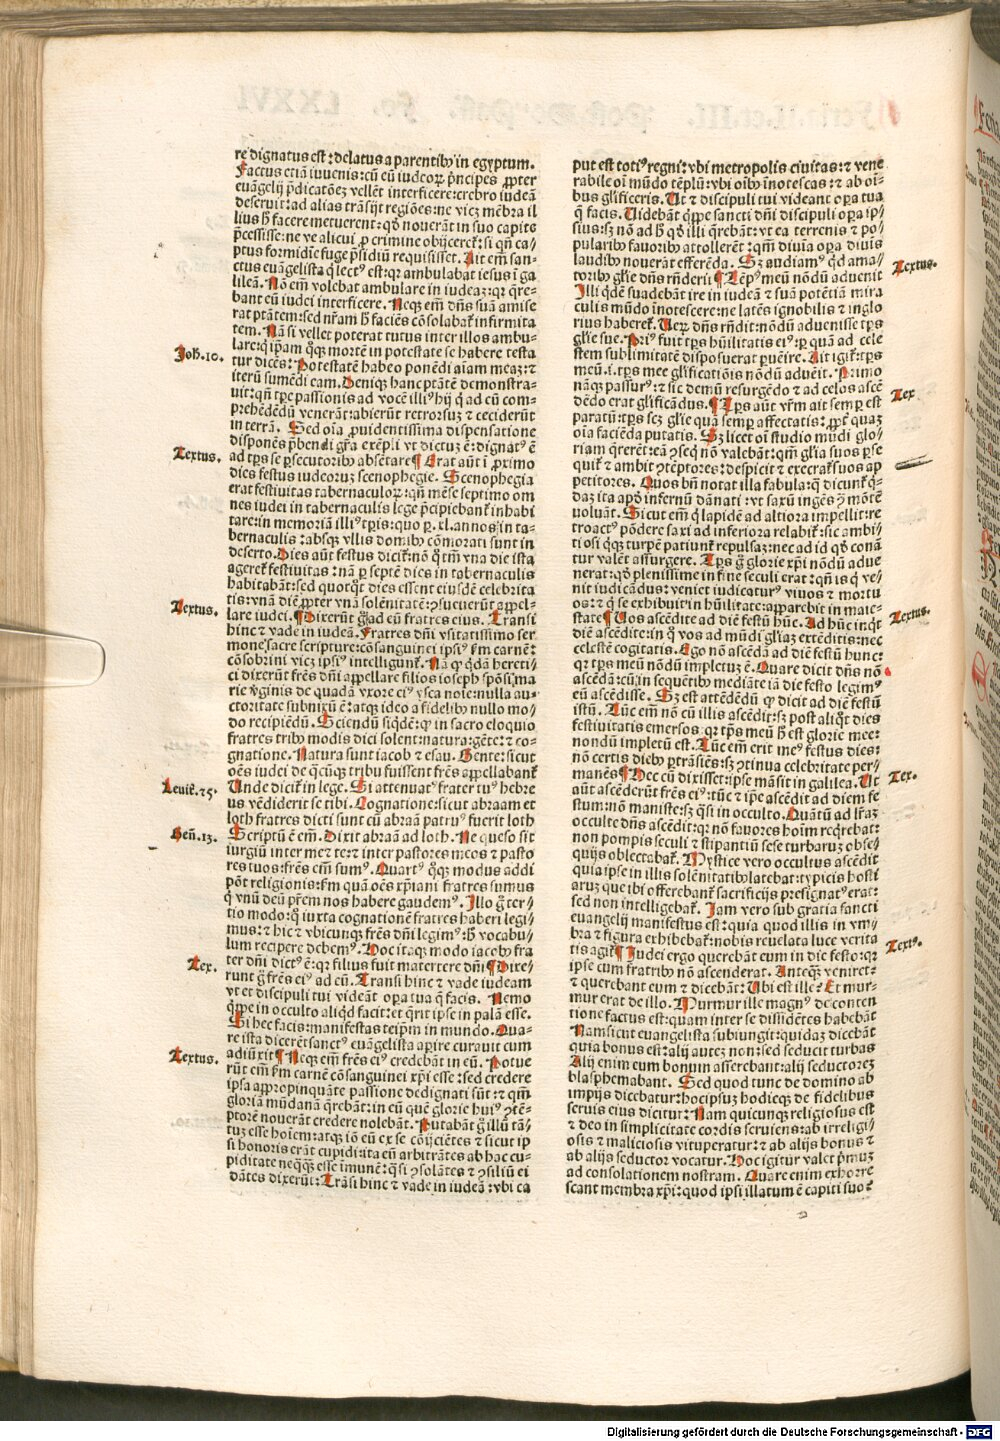 re dignatus est: delatus a parentibꝰ in egyptum.
Factus etiã iuvenis: cũ eũ iudeoꝝ p̃ncipes ꝓpter
euãgelij p̃dicatõeʒ vellẽt interficere: crebro iudeã
deseruit: ad alias trãsijt regiões: ne viceʒ mẽbra il
lius h̃ facere metuerent: qď nouerãt in suo capite
p̃cessisse: ne ve alicui ꝓ crimine obijceret᷑: si qñ ca/
ptus formidie fuge p̃sidiũ requisisset. Ait em̃ san⸗
ctus euãgelista q̇ lectꝰ est: qꝛ ambulabat iesus ĩ ga
lileã. Nõ em̃ volebat ambulare in iudeaʒ: qꝛ q̃re⸗
bant eũ iudei interficere. Neqʒ em̃ dñs suã amise
rat ptãtem: sed nr̃am h̃ faciẽs cõsolabat᷑ infirmita
tem. Nã si vellet poterat tutus inter illos ambu⸗
lare: q̇ ip̃am q̊qʒ mortẽ in potestate se habere testa
Joh. 10.
tur dicẽs: Potestatẽ habeo ponẽdi aĩam meaʒ: ⁊
iterũ sumẽdi eam. Deniqʒ hanc ptãtẽ demonstra⸗
uit: qñ tp̃e passionis ad vocẽ illiꝰ hij q̇ ad eũ com⸗
prehẽdẽdũ venerãt: abierũt retrorsuʒ ⁊ ceciderũt
in terrã. Sed oĩa ꝓuidentissima dispensatione
disponẽs p̃bendi gr̃a exẽpli vt dictuʒ ẽ: dignatꝰ ẽ
Textus.
ad tp̃s se ꝑsecutoribꝰ absẽtare ¶ Erat aũt ĩ ꝓximo
dies festus iudeoruʒ scenophegie. Scenophegia
erat festiuitas tabernaculoꝝ: qñ mẽse septimo om
nes iudei in tabernaculis lege p̃cipiebant᷑ inhabi
tare: in memoriã illiꝰ tp̃is: quo ꝑ .xl. annos: in ta⸗
bernaculis: absqʒ vllis domibꝰ cõmorati sunt in
deserto. Dies aũt festus dicit᷑: nõ q̇ tm̃ vna die ista
ageret᷑ festiuitas: nã ꝑ septẽ dies in tabernaculis
habitabãt: sed quotq̊t dies essent eiusdẽ celebrita
tis: vnã diẽ ꝓpter vnã solẽnitatẽ: ꝯsueuerũt appel⸗
Textus.
lare iudei. ¶ Dixerũt g̊ ad eũ fratres eius. Transi
hinc ⁊ vade in iudeã. Fratres dñi vsitatissimo ser
mone sacre scripture: cõsanguinei ipsiꝰ ꝑm carnẽ:
cõsobrini viceʒ ipsiꝰ intelligunt᷑. Nã ꝙ q̇dã hereti⸗
ci dixerũt frẽs dñi appellare filios ioseph spõsi: ma
rie ṽginis de quadã vxore eiꝰ ꝯsca noĩe: nulla au⸗
ctoritate subnixũ ẽ: atqʒ ideo a fidelibꝰ nullo mo⸗
do recipiẽdũ. Sciendũ siq̃dẽ: ꝙ in sacro eloquio
fratres tribꝰ modis dici solent: natura: gẽte: ⁊ co⸗
gnatione. Natura sunt iacob ⁊ esau. Gente: sicut
oẽs iudei de q̃cũqʒ tribu fuissent frẽs appellabant᷑
Leuit᷑. 25.
Unde dicit᷑ in lege. Si attenuatꝰ frater tuꝰ hebre
us vẽdiderit se tibi. Cognatione: sicut abraam et
loth fratres dicti sunt cũ abraã patruꝰ fuerit loth
Geñ. 13.
Scriptũ ẽ em̃. Dixit abraã ad loth. Ne queso sit
iurgiũ inter me ⁊ te: ⁊ inter pastores meos ⁊ pasto
res tuos: frẽs em̃ sumꝰ. Quartꝰ q̊qʒ modus addi
põt religionis: ꝑm quã oẽs xp̃iani fratres sumus
q̇ vnũ deũ pr̃em nos habere gaudemꝰ. Illo g̊ ter⸗/
tio modo: q̇ iuxta cognationẽ fratres haberi legi⸗
mus: ⁊ hic ⁊ vbicunqʒ frẽs dñi legimꝰ: h̃ vocabu/
lum recipere debemꝰ. Hoc itaqʒ modo iacobꝰ fra
Tex.
ter dñi dictꝰ ẽ: qꝛ filius fuit matertere dñi ¶ Dixe/
runt g̊ frẽs eiꝰ ad eũ. Transi hinc ⁊ vade iudeam
vt et discipuli tui videãt opa tua q̃ facis. Nemo
q̃ppe in occulto aliqď facit: et q̃rit ipse in palã esse.
Si hec facis: manifestas teip̃m in mundo. Qua⸗
re ista dicerẽt: sanctꝰ euãgelista apire curauit cum
Textus.
adiũxit ¶ Neqʒ em̃ frẽs eiꝰ credebãt in eũ. Potue
rũt em̃ ꝑm carnẽ cõsanguinei xp̃i esse: sed credere
ipsa appropinquãte passione dedignati sũt: ⁊ qm̃
gloriã mũdanã q̃rebãt: in eũ quẽ glorie huiꝰ ꝯtẽ⸗
ptorẽ nouerãt credere nolebãt. Putabãt g̊ illũ tã⸗
tuʒ esse hoĩem: atqʒ iõ eũ ex se cõijciẽtes ⁊ sicut ip
si honoris erãt cupidi: ita eũ arbitrãtes ab hac cu⸗
piditate neq̃q̃ʒ esse imunẽ: q̃si ꝯsolãtes ⁊ ꝯsiliũ ei
dãtes dixerũt: Trãsi hinc ⁊ vade in iudeã: vbi ca
put est totiꝰ regni: vbi metropolis ciuitas: ⁊ vene
rabile oĩ mũdo tẽplũ: vbi oĩbꝰ inotescas: ⁊ ab oĩ⸗
bus glificeris. Ut ⁊ discipuli tui videant opa tua
q̃ facis. Uidebãt q̃ppe sancti dñi discipuli opa ip⸗/
sius: sʒ nõ ad h̃ qď illi q̃rebãt: vt ea terrenis ⁊ po⸗/
pularibꝰ fauoribꝰ attollerẽt: qm̃ diuĩa opa diuĩs
laudibꝰ nouerãt efferẽda. Sʒ audiamꝰ q̇d ama⸗/
Textus.
toribꝰ gl̃ie dñs rñderit ¶ Tẽpꝰ meũ nõdũ aduenit
Illi q̇dẽ suadebãt ire in iudeã ⁊ suã potẽtiã mira
culis mũdo ĩnotescere: ne latẽs ignobilis ⁊ inglo
rius haberet᷑. Ueꝝ dñs rñdit: nõdũ aduenisse tp̃s
gl̃ie sue. Priꝰ fuit tp̃s hũilitatis eiꝰ: ꝑ quã ad cele
stem sublimitatẽ disposuerat ꝑuẽire. Ait igit᷑: tp̃s
meũ .i. tp̃s mee glificatiõis nõdũ aduẽit. Primo
nãqʒ passurꝰ: ⁊ sic demũ resurgẽdo ⁊ ad celos ascẽ
Tex
dẽdo erat glificãdus. ¶ Tp̃s aũt vr̃m ait semꝑ est
paratũ: tp̃s scʒ glie qua semꝑ affectatis: ꝓpt᷑ quaʒ
oĩa faciẽda putatis. Sʒ licet oĩ studio mũdi glo⸗/
riam q̃reret: eã ꝯseq̇ nõ valebãt: qm̃ glia suos ꝑse
quit᷑ ⁊ ambit ꝯtẽptores: despicit ⁊ execrat᷑ suos ap
petitores. Quos bñ notat illa fabula: q̃ dicunt᷑ q̃⸗
daʒ ita apď infernũ dãnati: vt saxũ ingẽs ꝯ mõtẽ
voluãt. Sicut em̃ q̇ lapidẽ ad altiora impellit: re
troactꝰ põdere saxi ad inferiora relabit᷑: sic ambi⸗/
tiosi q̊qʒ turpẽ patiunt᷑ repulsaʒ: nec ad id qď conã
tur valẽt assurgere. Tp̃s g̊ glorie xp̃i nõdũ adue
nerat: qď plenissime in fine seculi erat: qñ is q̇ ve⸗/
nit iudicãdus: veniet iudicaturꝰ viuos ⁊ mortu
os: ⁊ q̇ se exhibuit in hũilitate: apparebit in maie⸗
Textus.
state ¶ Uos ascẽdite ad diẽ festũ hũc. Ad hũc inq̇t
diẽ ascẽdite: in q̊ vos ad mũdi gl̃iaʒ extẽditis: nec
celestẽ cogitatis. Ego nõ ascẽdã ad diẽ festũ hunc:
qꝛ tp̃s meũ nõdũ impletuʒ ẽ. Quare dicit dñs nõ
ascẽdã: cũ in sequẽtibꝰ mediãte iã die festo legimꝰ
eũ ascẽdisse. Sʒ est attẽdẽdũ ꝙ dicit ad diẽ festũ
istũ. Tũc em̃ nõ cũ illis ascẽdit: sʒ post aliq̊t dies
festiuitatis emersos: qꝛ tp̃s meũ h̃ est glorie mee:
nondũ impletũ est. Tũc em̃ erit meꝰ festus dies:
nõ certis diebꝰ ptrãsiẽs: sʒ ꝯtinua celebritate per⸗
Tex.
manẽs ¶ Hec cũ dixisset: ipse mãsit in galilea. Ut
aũt ascẽderũt frẽs eiꝰ: tũc ⁊ ip̃e ascẽdit ad diem fe
stum: nõ maniste: sʒ q̃si in occulto. Quãtũ ad lr̃aʒ
occulte dñs ascẽdit: qꝛ nõ fauores hoĩm req̃rebat:
non pompis seculi ⁊ stipantiũ sese turbaruʒ obse⸗/
quijs oblectabat᷑. Mystice vero occultus ascẽdit
quia ipse in illis solẽnitatibꝰ latebat: typicis hosti
aruʒ que ibi offerebant᷑ sacrificijs presignatꝰ erat:
sed non intelligebat᷑. Jam vero sub gratia sancti
euangelij manifestus est: quia quod illis in vm/
bra ⁊ figura exhibebat᷑: nobis reuelata luce verita
Textꝰ.
tis agit᷑ ¶ Judei ergo querebãt eum in die festo: qꝛ
ipse cum fratribꝰ nõ ascenderat. Anteq̃ʒ veniret⸗
⁊ querebant eum ⁊ dicebãt: Ubi est ille? Et mur⸗
mur erat de illo. Murmur ille magnꝰ de conten
tione factus est: quam inter se dissidẽtes habebãt
Nam sicut euangelista subiungit: quidaʒ dicebãt
quia bonus est: alij auteʒ non: sed seducit turbas
Alij enim eum bonum asserebant: alij seductoreʒ
blasphemabant. Sed quod tunc de domino ab
impijs dicebatur: hoc ipsuʒ hodieqʒ de fidelibus
seruis eius dicitur: Nam quicunqʒ religiosus est
⁊ deo in simplicitate cordis seruiens: ab irreligi⸗
osis ⁊ maliciosis vituperatur: ⁊ ab alijs bonus ⁊
ab alijs seductor vocatur. Hoc igitur valet p̃muʒ
ad consolationem nostram. Quare enim exhorre
scant membra xp̃i: quod ipsi illatum ẽ capiti suo?
Digitalisierung gefördert durch die Deutsche Forschungsgemeinschaft - DFG